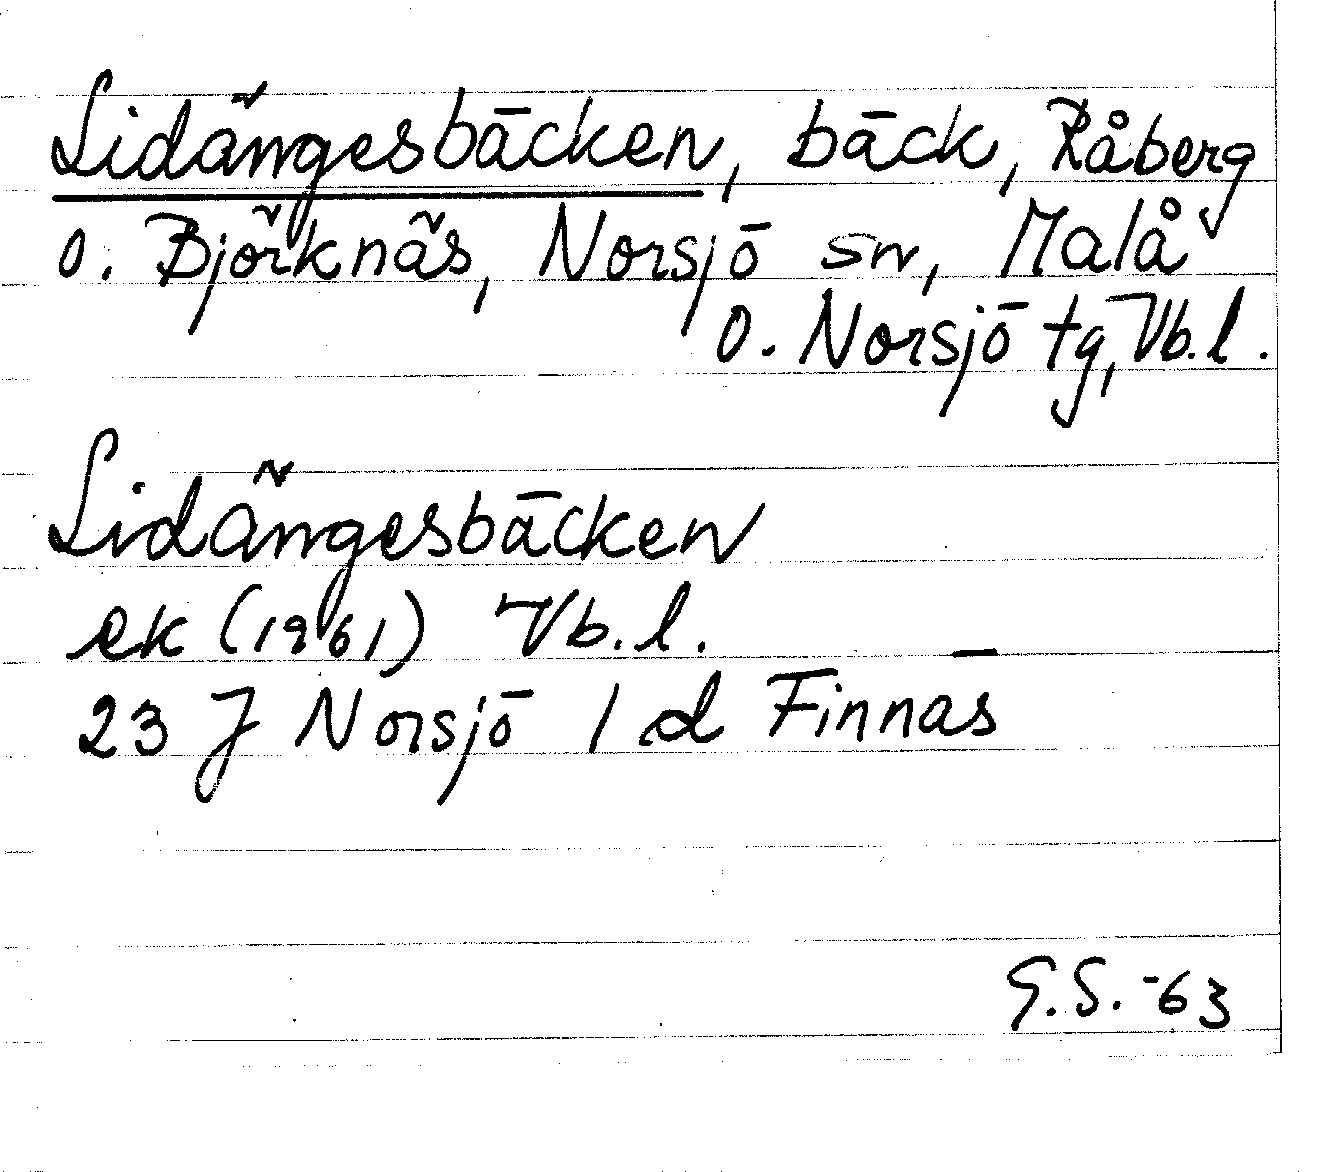 Lidängesbäcken, bäck, Råberg
o. Björknäs, Norsjö sn, Malå
o. Norsjö tg, Vb.l.
Lidängesbäcken
ek (1961) Vb.l.
23 J Norsjö 1 d Finnäs
G.S.-63